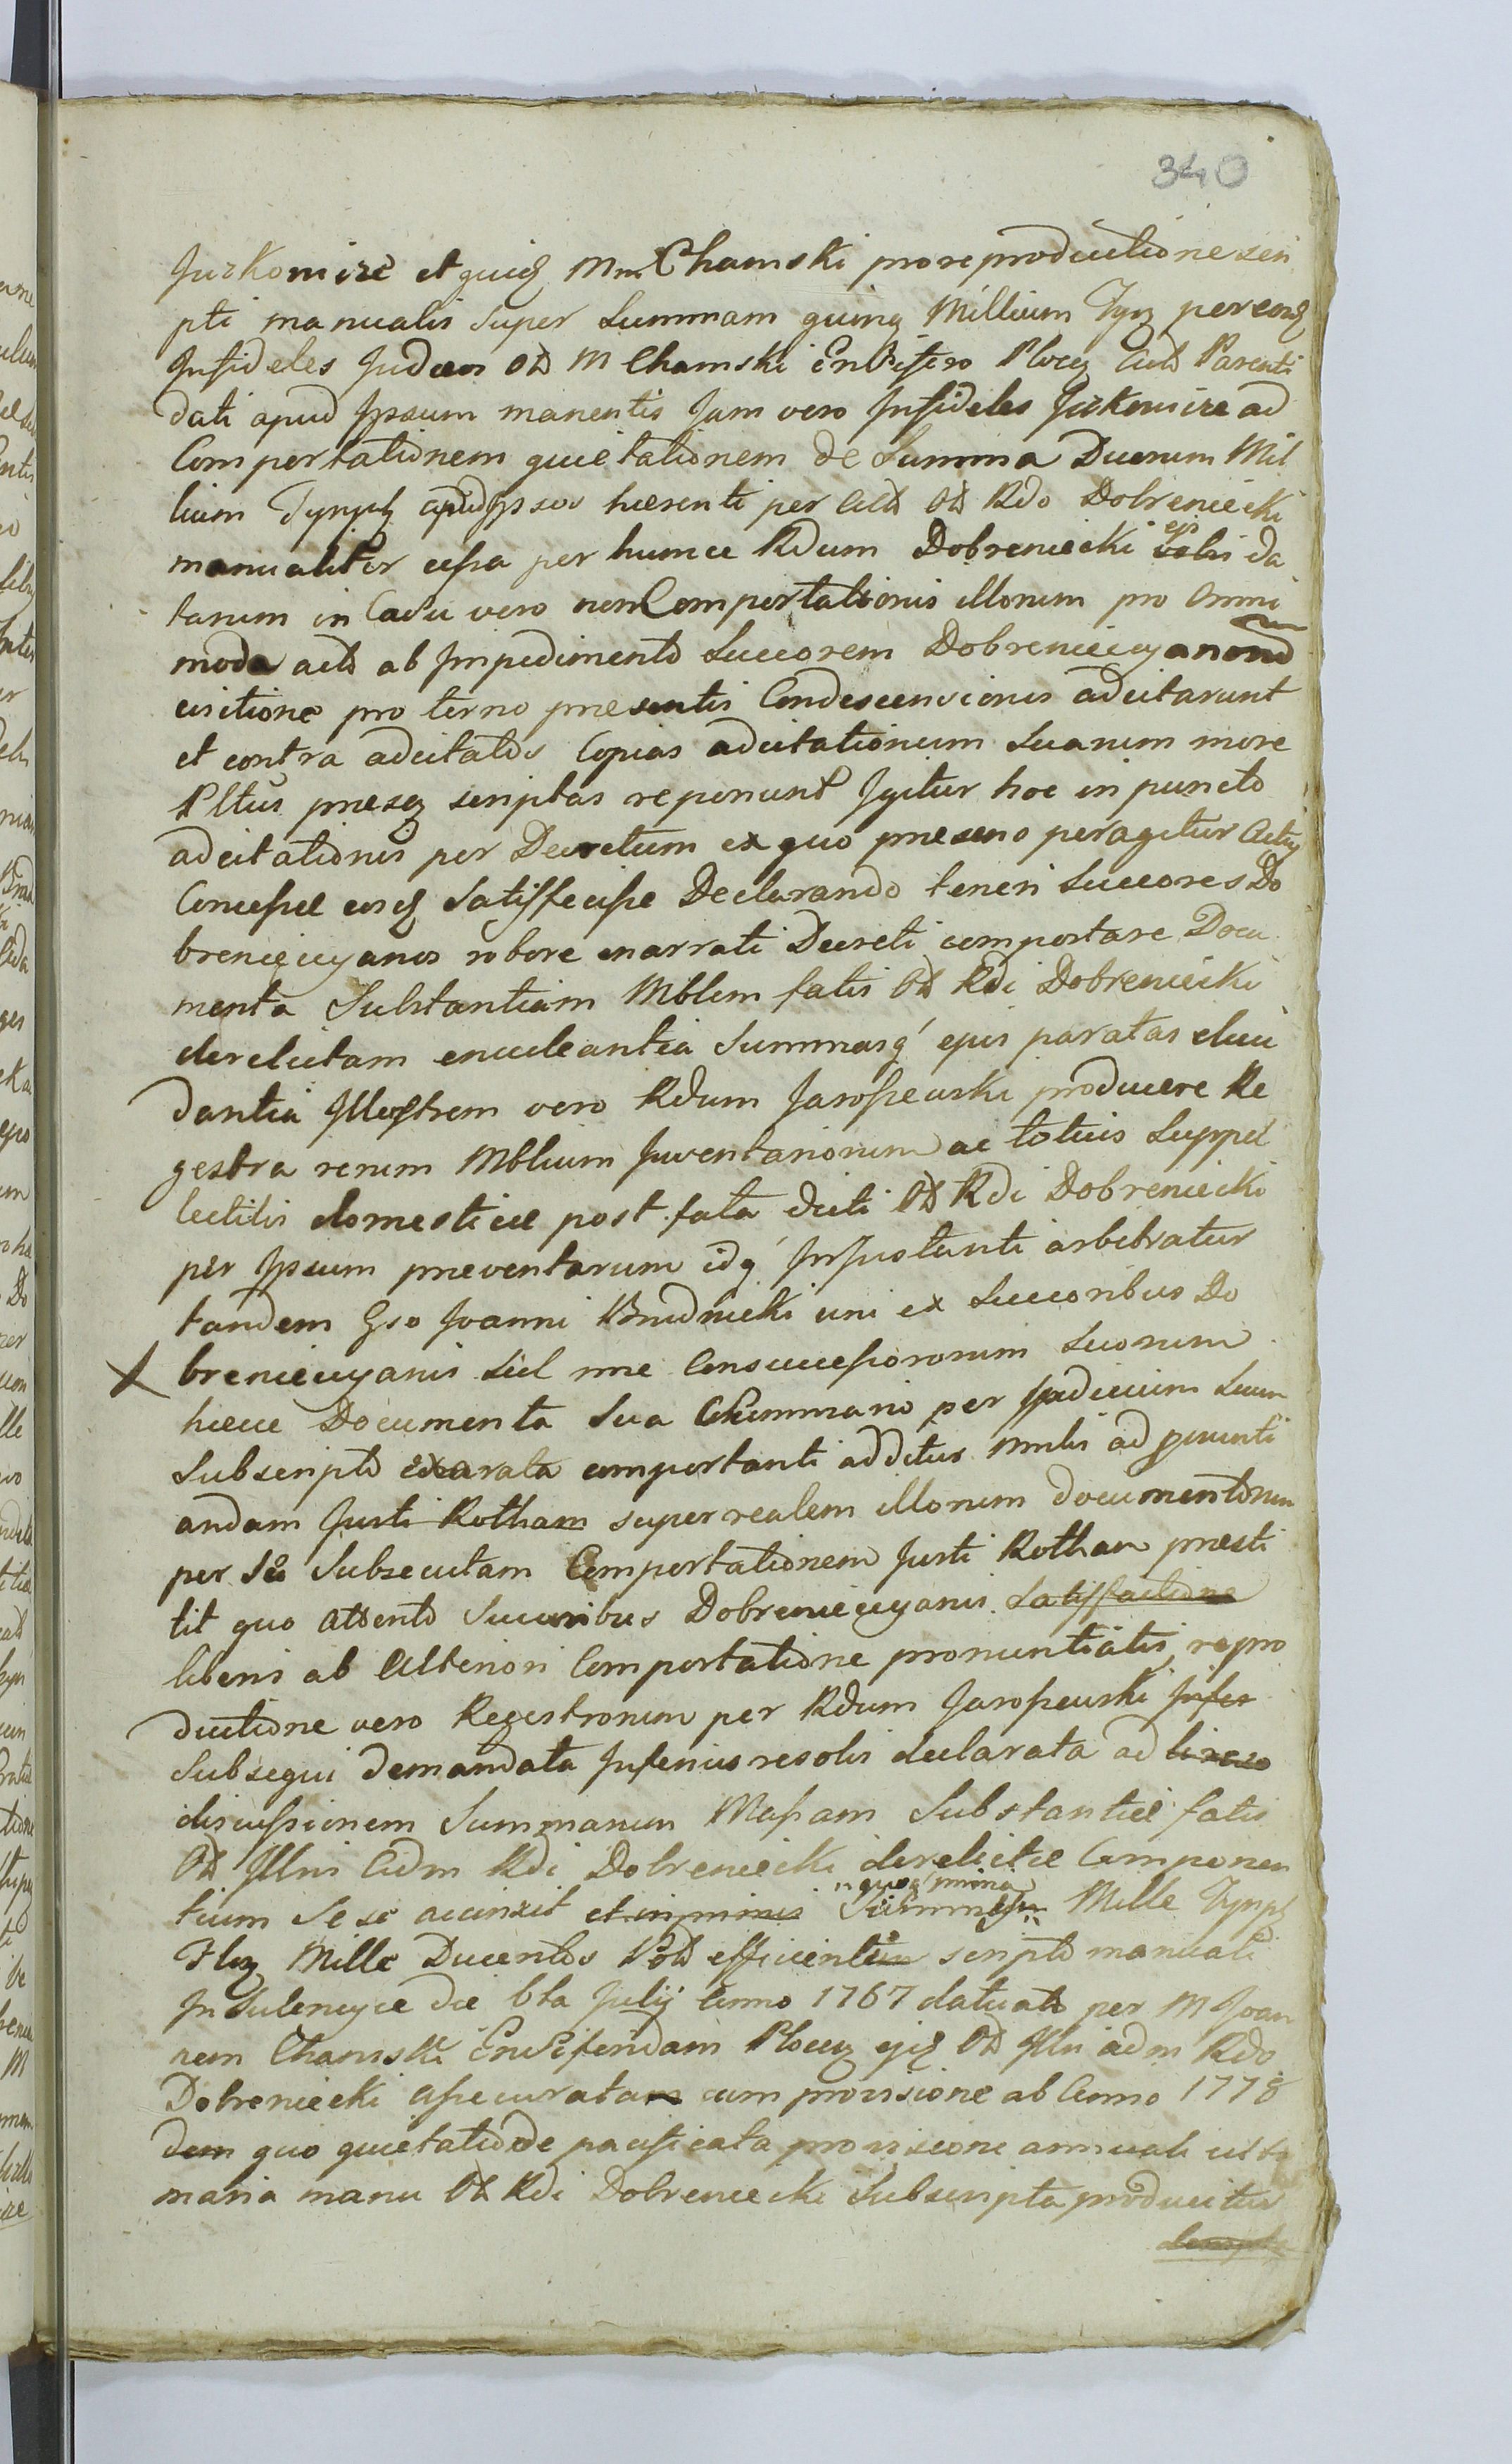 340
Jurkomire et quidẽ Mm Chamski pro reproductione scri
pti manualis super Summam quinq Millium Tynf per eosdẽ
Infideles Judæos Od M Chamski Ensifero Plocẽ Actd Parenti
dati apud Ipsum manentis Jam vero Infideles Jurkomire ad
Comportationem quietationem de Summa Duorum Mil
lium Tynph apud Ipsos hærenti per Actd Od Rdo Dobreniecki
manualiter cessa per hunce Rdum Dobreniecki ejs da
tarum in Casu vero non Comportationis illorum pro Omni
moda actd ab Impedimento Succorem Dobreniecyanorum
citatione pro termo præsentis Condescensionis adcitarunt
et contra adcitatos Copias adcitationum Suarum more
Pltus præsẽ scriptas reponunt Igitur hoc in puncto
adcitationis per Decretum ex quo præsens peragitur Actus
Concessæ eosdẽ Satisfecisse Declarando teneri Succores Do
breniecyanos robore enarrati Decreti comportare Docu
menta Substantiam Mblem fatis Od Rdi Dobreniecki
derelictam enucleantia Summasq ejus paratas eluci
dantia Illostrem vero Rdum Jarossewski producere Re
gestra rerum Mblium Inventariorum ac totius Suppel
lectilis domesticæ post fata dicti Od Rdi Dobreniecki
per Ipsum præventarum idq Injustanti arbitratur
tandem Gso Joanni Brudnicki uni ex Succoribus Do
breniecyanis Suo nne Consuccessororum Suorum
hæcce Documenta Sua Summario per Judicium Suum
Subscripto exarata comportanti additus Mnlis ad
andam Justi Rotham super realem illorum documentorum
per Se Subsecutam Comportationem Justi Rotham præsti
tit quo attento Succoribus Dobrenieciyanis Satisfactione
liberis ab Ulteriori Comportatione pronuntiatis, repro
ductione vero Regestrorum per Rdum Jarossewski Infer
Subsequi demandata Inferius resolis declarata ad
discussionem Summarum Massam Substantiæ fatis
Od Illris Adm Rdi Dobreniecki derelictæ Componen
tium Sese accinxit et inprimis quoq prima Summam Mille Tynph
Flor Mille Ducentos Pold efficientem scripto manuali
In Sulencyce die 6ta Julij Anno 1767 datuato per M Joan
nem Chamski Ensiferidam Plocẽ ejdẽ Od Illri adm Rdo
Dobreniecki assecuratam cum provisione ab Anno 1778
dem quo quietatio de pacificata provisione annuali ulti
maria manu Od Rdi Dobreniecki Subscripta producitur